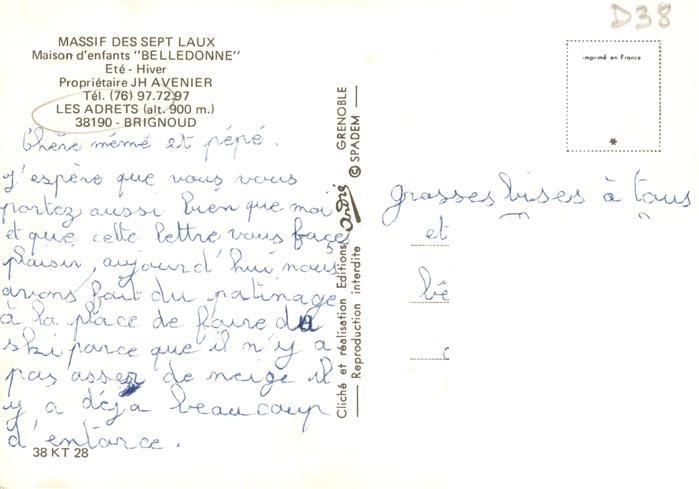 D38
MASSIF DES SEPT LAUX
Maison d'enfants "BELLEDONNE"
Eté - Hiver
Propriétaire JH AVENIER
Tél. (76) 97.72.97
LES ADRETS (alt. 900 m.)
38190 - BRIGNOUD
Chère mémé et pépé.
J'espère que vous vous
portez aussi bien que moi
et que cette lettre vous face
plaisir, aujourd'hui nous
avons fait du patinage
à la place de faire du
ski parce que il n'y a
pas asser de neige il
y a déjà beaucoup
d'entorce.
38 KT 28
Cliché et réalisation Editions André GRENOBLE
Reproduction interdite © SPADEM
imprimé en France
*
grosses bises à tous
et
bé